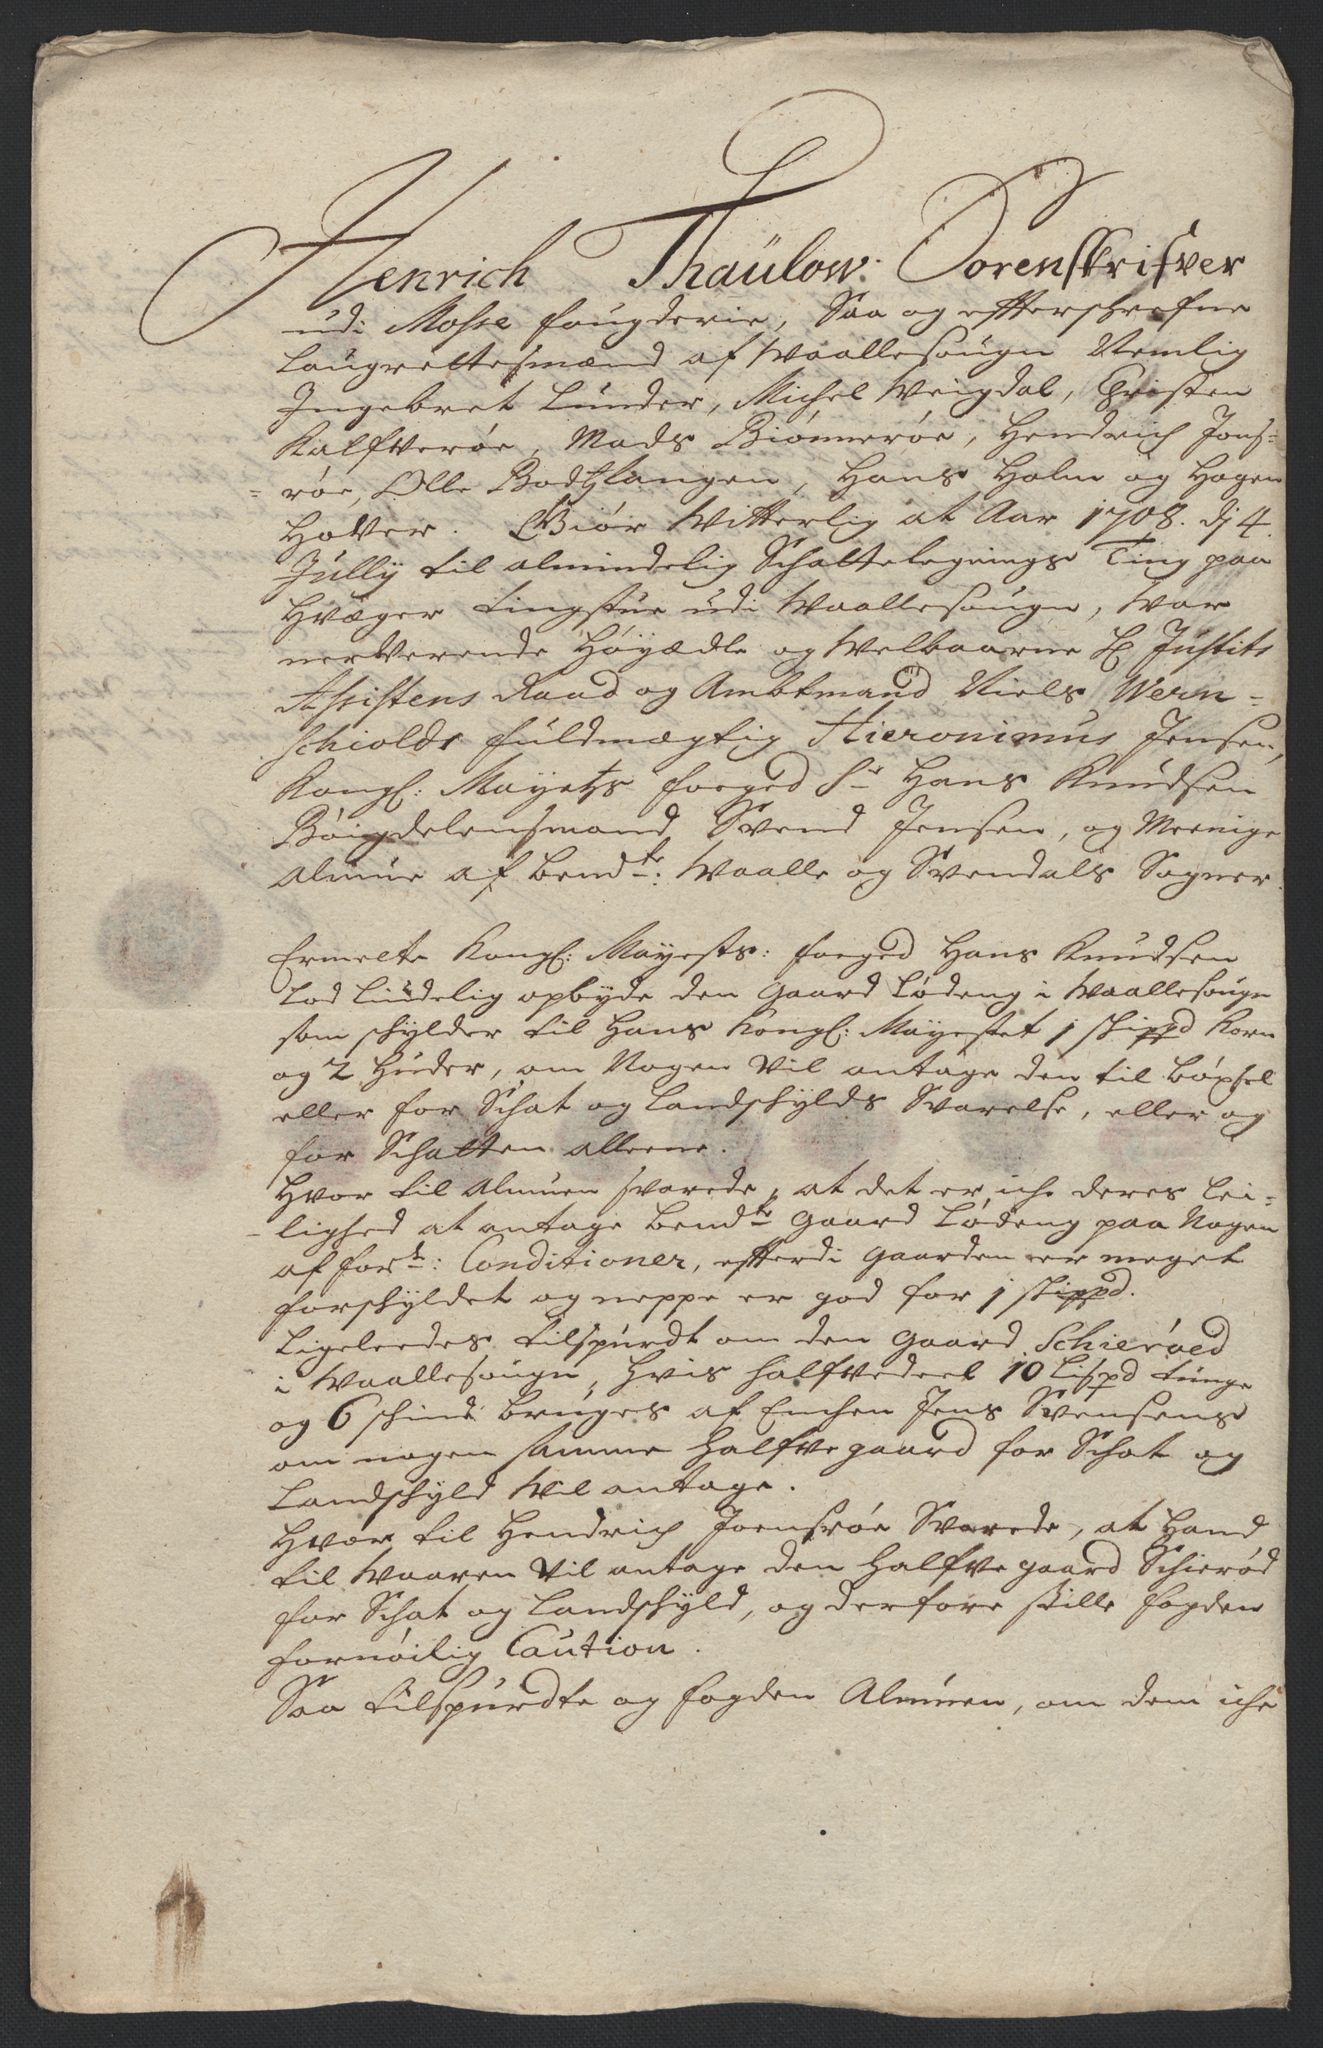 Henrich Thaulow: Sorenskrifver
udi Mosse fougderie, Saa og effterschrefne
Laugrettesmænd af Waallesougn Nemlig
Ingebret Lunder, Michel Weigdal, Christen
Kalfverøe, Mads Biønnerøe, Hendrich Jons-
røe, Olle Bodtzlangen, Hans Holm og Hagen
Hover. Giør Witterlig at Aar 1708. dj 4
Jully til almindelig Schattelegnings Ting paa
Hvæger tingstue udi Waallesougn, War
nerverende Høyædle og Welbaarne H Justits
Assistens Raad og Ambtmand Niels Wern-
schiolds fuldmægtig Hieronimus Jensen,
Kongl: Mayetz foged Sr Hans Knudsen
Bøigdelensmand Svend Jensen, og Meenige
Almue af bemdte: Waalle og Svendals Sogner.
Ermelte Kongl: Mayests: foged Hans Knudsen
Lod Liudelig opbyde den gaard Lødeng i Waallesougn
som schylder til Hans Kongl: Mayestet 1 schippd Korn
og 2 Huder, om Nogen Vil antage den til bøxsel
eller for Schat og Landschylds Svarelse, eller og
for Schatten alleene.
Hvor til Almuen svarede, at det er iche deres Lei-
lighed at antage bemdte gaard Lødeng paa Nogen
af forde: Conditioner, efterdi gaarden er meget
forschyldet og neppe er god for 1 schippd.
Ligeleedes tilspurdt om den gaard Schierøed
i Waallesougn, hvis halfvedeel 10 Lispd tunge
og 6 schind bruges af Enchen Jens Svensens
om nogen samme halfve gaard for Schat og
Landschyld Wil antage.
Hvor til Hendrich Joensrøe Svarede, at Hand
til Waaren Vil antage den halfve gaard Schierød
for Schat og Landschyld, og derfore stille fogden
fornøilig Caution.
Saa tilspurdte og fogden Almuen, om dem iche